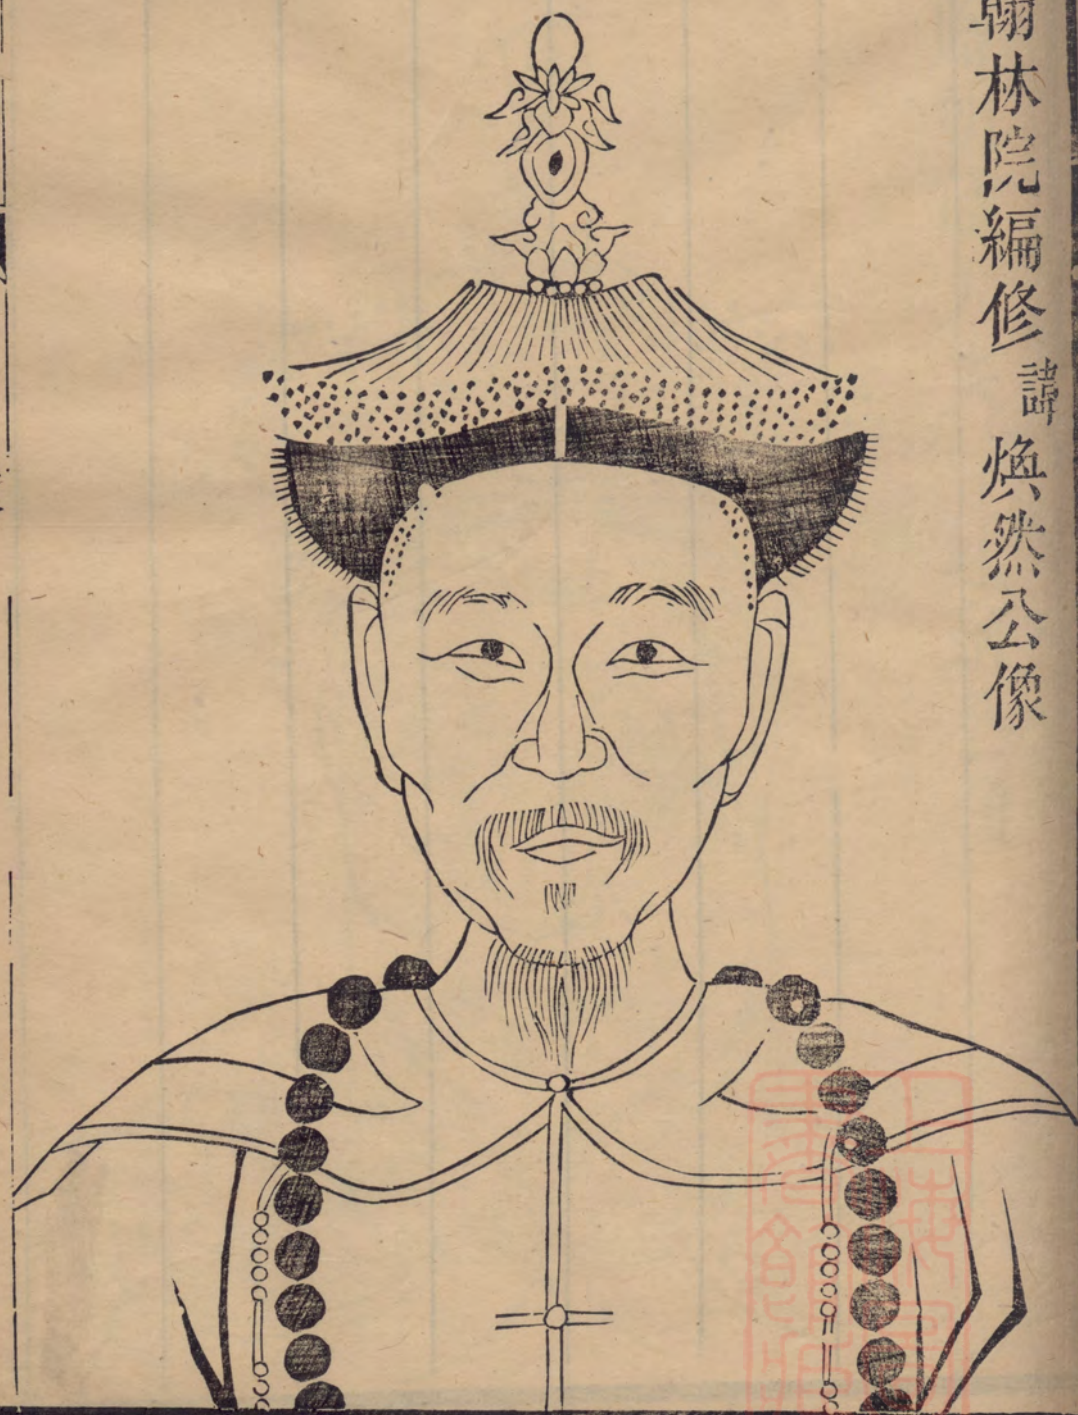 翰林院編修諱煥然公像